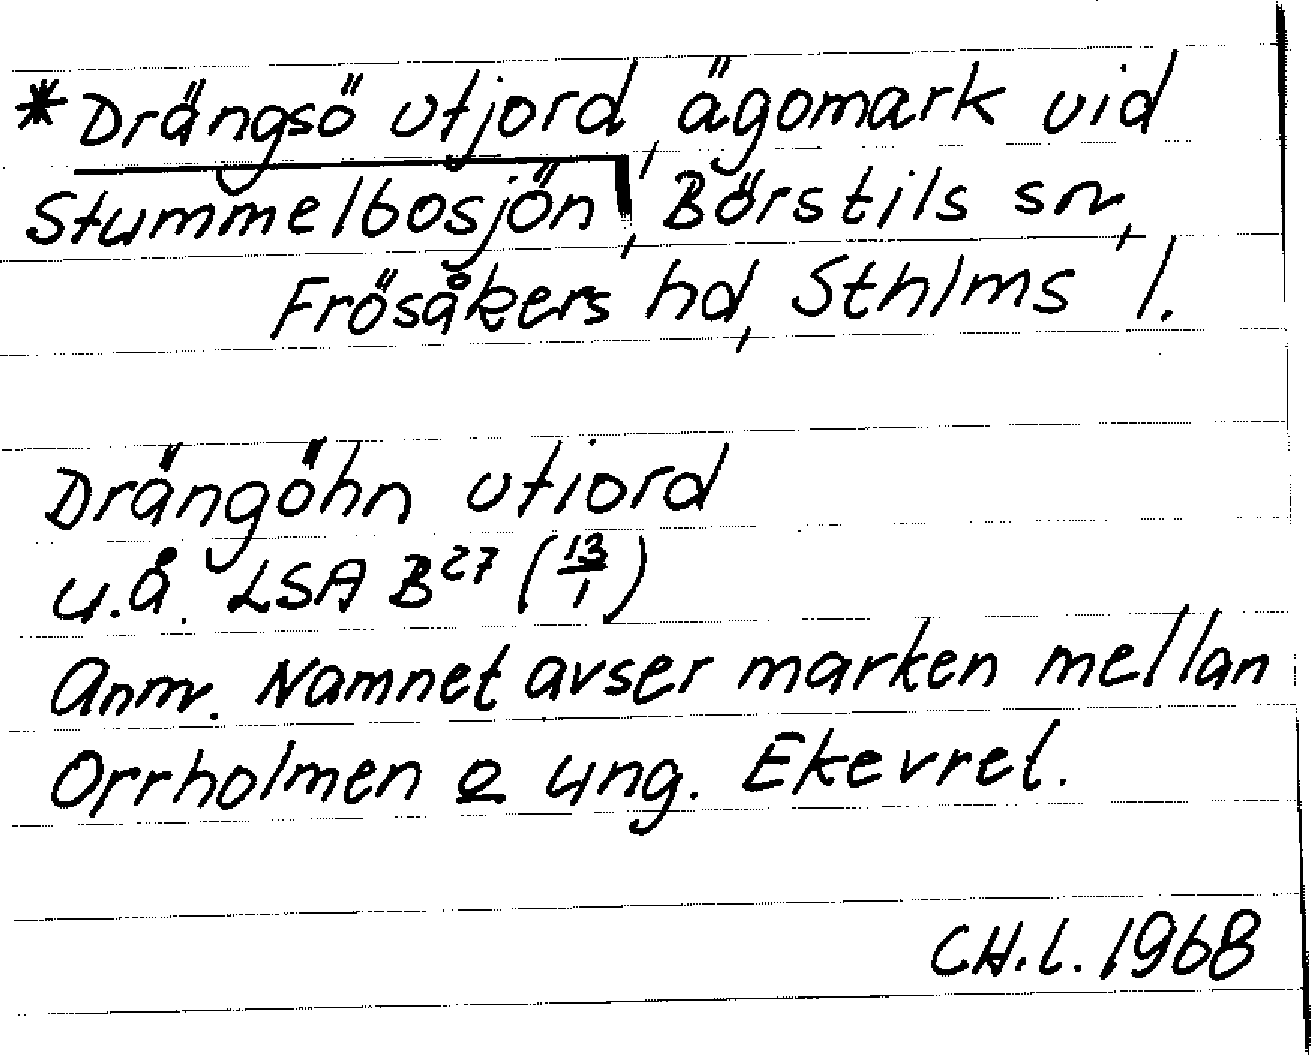 *Drängsö utjord, ägomark vid
Stummelbosjön, Börstils sn,
Frösåkers hd, Sthlms l.
Drängöhn utiord
u.å. LSA B27 (13/1)
Anm. Namnet avser marken mellan
Orrholmen o ung. Ekevret.
CH.L. 1968